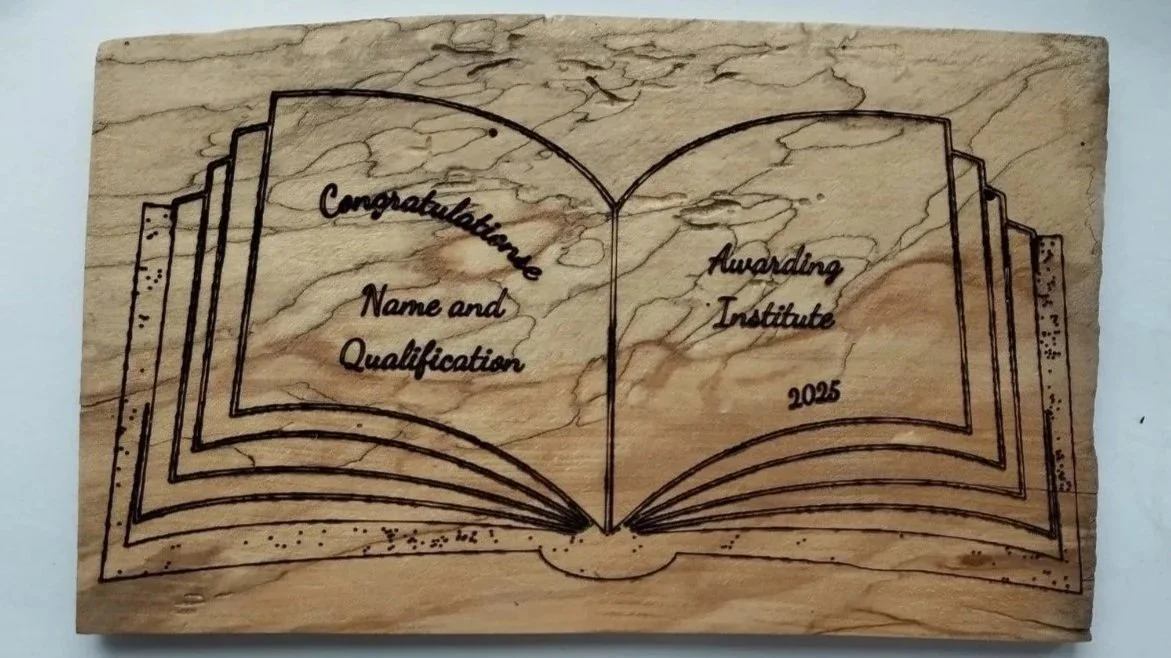 Congratulationse
Name and
Qualification
Awarding
Institute
2025